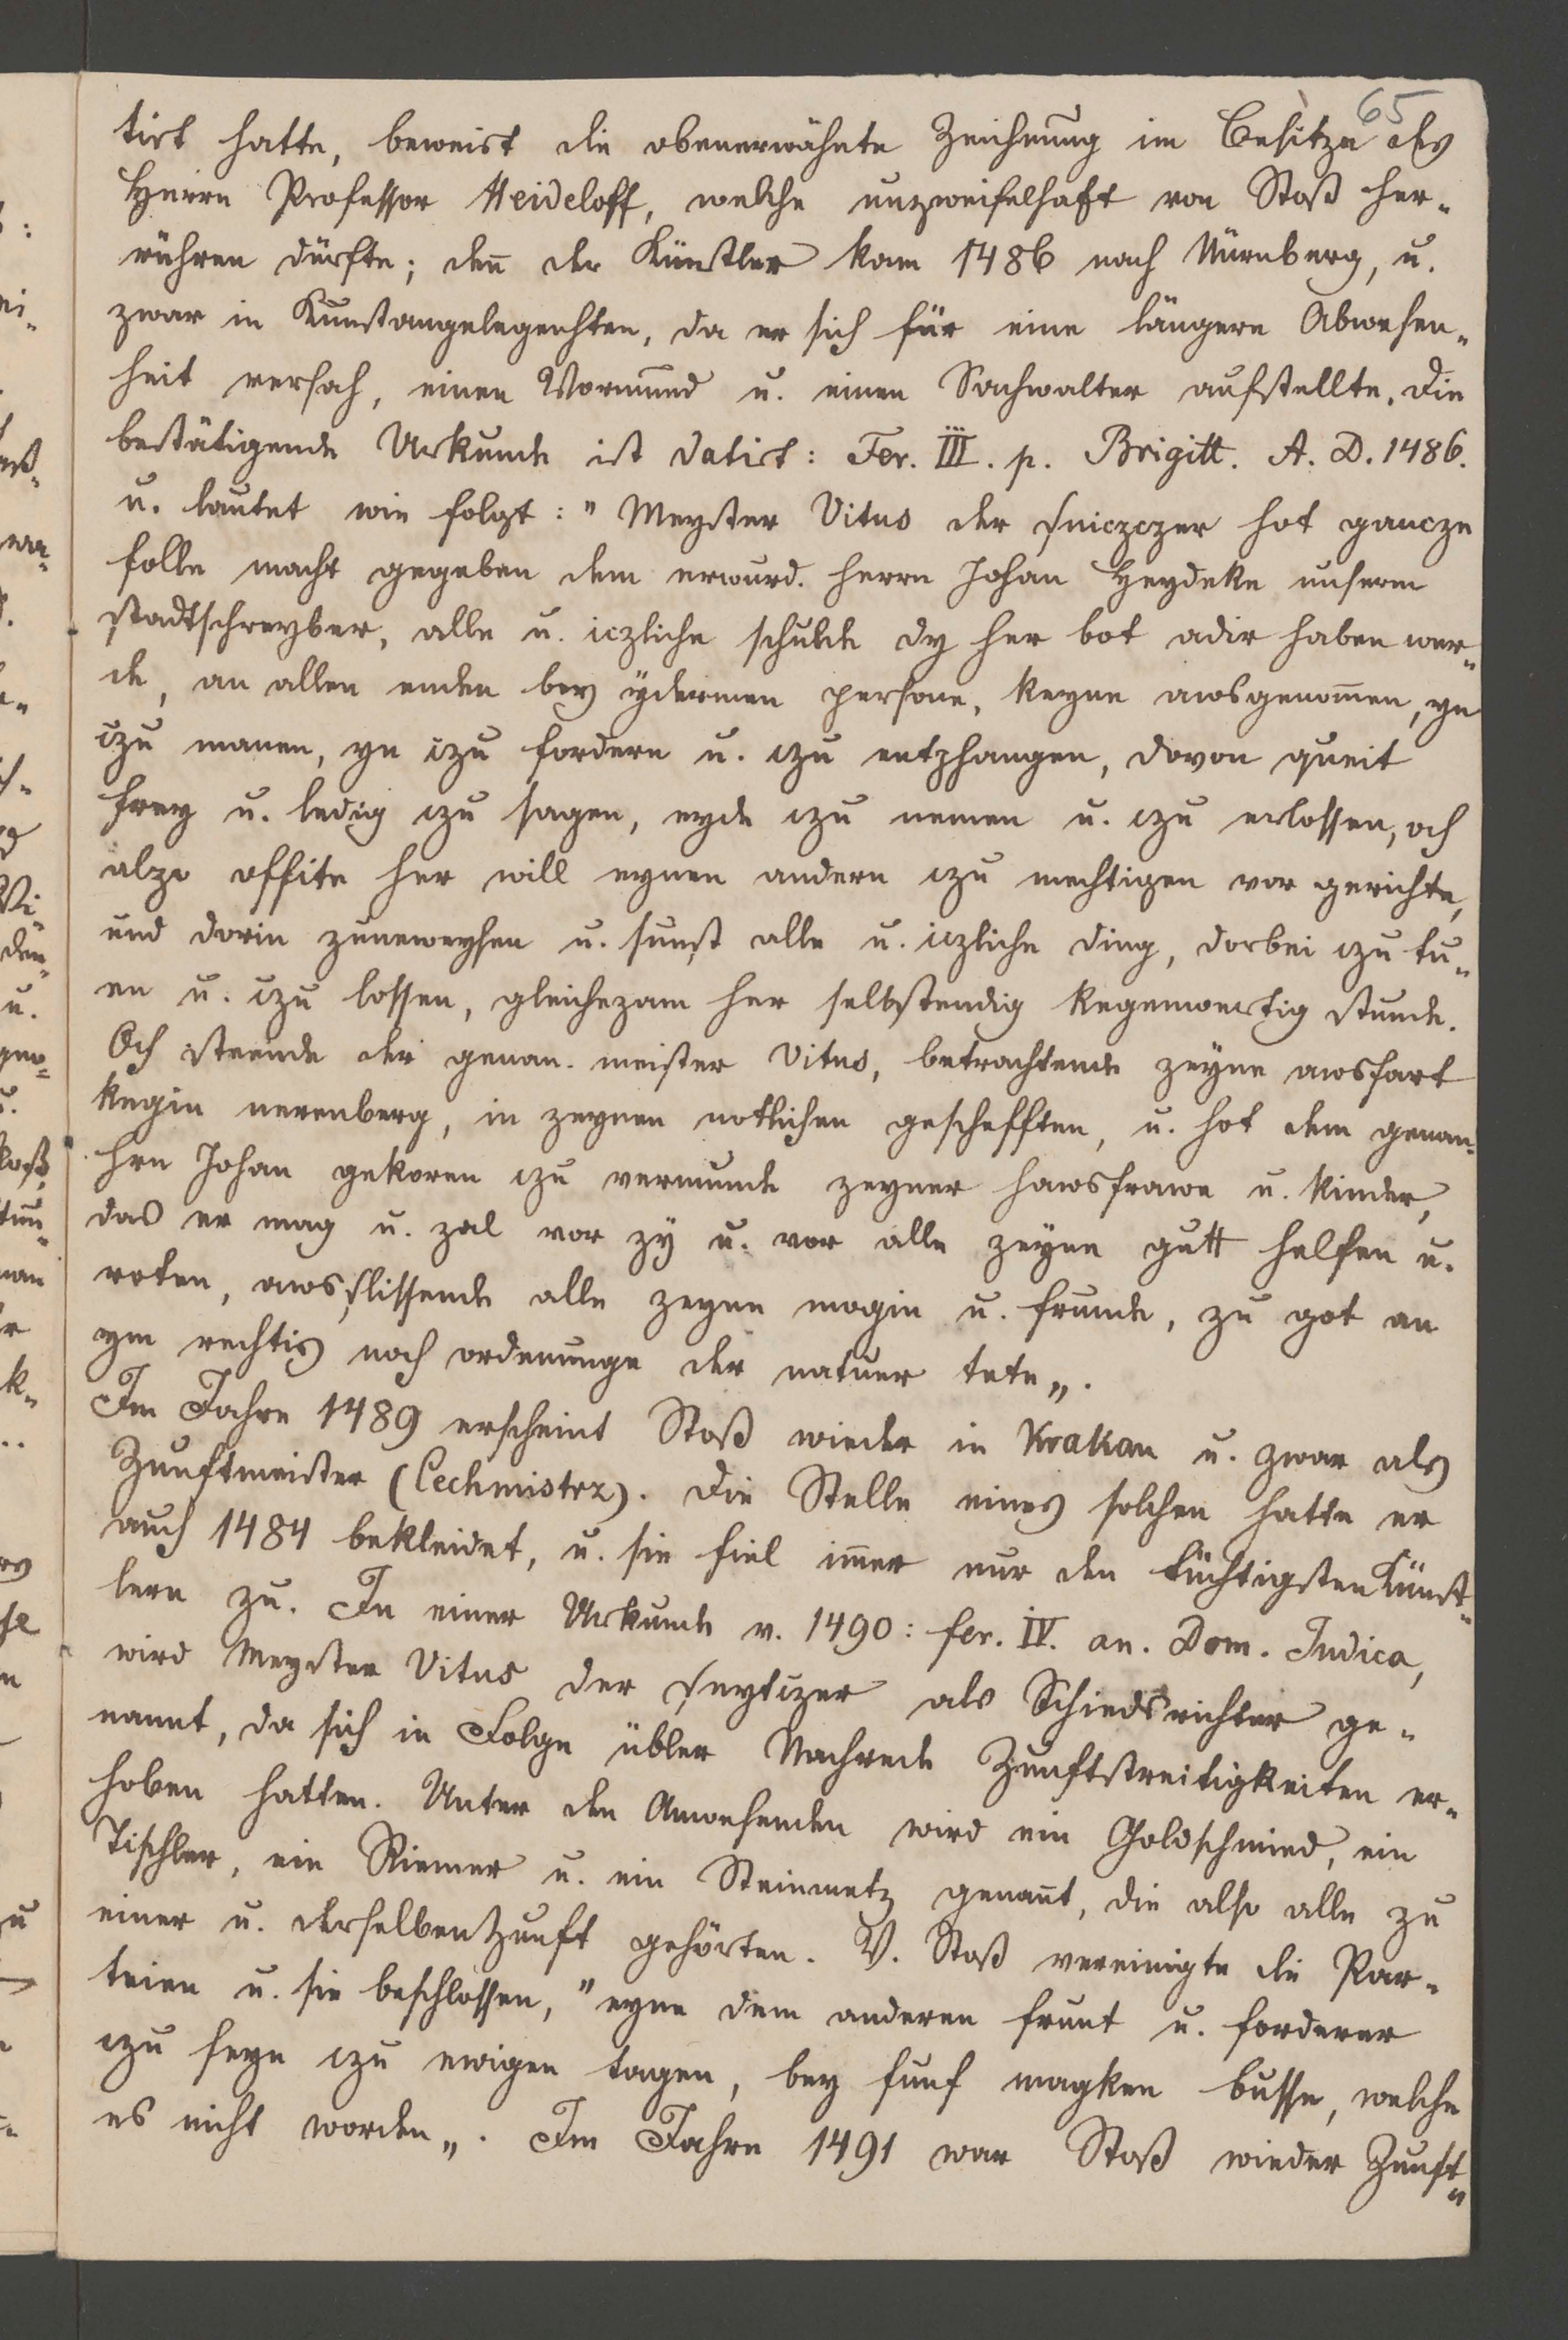 65
tirt hatte, beweist die obenerwähnte Zeichnung im Besitze des
Herrn Professor Heideloff, welche unzweifelhaft von Stoß her-
rühren dürfte; deñ der Künstler kam 1486 nach Nürnberg, u.
zwar in Kunstangelegenhten, da er sich für eine längere Abwesen-
heit versah, einen Vormund u. einen Sachwalter aufstellte. Die
bestätigende Urkunde ist datirt: Fer. III. p. Brigitt. A. D. 1486.
u. lautet wie folgt: "Meyster Vitus der sniczczer hot gancze
folle macht gegeben dem erwurd. herrn Johan Heydeke unserm
stadtschreyber, alle u. iczliche schulde dy her bot adir haben wer-
de, an allen enden bey ydermen persone, keyne awsgenom̄en, yn
czu manen, yn czu fordern u. czu entphangen, dovon queit
frey u. ledig czu sagen, eyde czu nemen u. czu erlossen, och
alzo offite her will eynen andern czu mechtigen vor gerichte,
und dorin zuneweysen u. sunst alle u. iczliche ding, dorbei czu tu-
en u. czu lossen, gleichezam her selbstendig kegenwertig stunde.
Och steende der genan. meister Vitus, betrachtende zeyne awsfart
kegin nerenberg, in zeynen notlichen geschefften, u. hot dem genan-
hrn Johan gekoren czu vermunde zeyner hawsfrawe u. kinder,
das er mag u. zal vor zy u. vor alle zeyne gutt helfen u.
roten, awsslissende alle zeyne mogin u. frunde, zu got an
ym rechtis noch ordenunge der natuer tete„.
Im Jahre 1489 erscheint Stoß wieder in Krakau u. zwar als
Zunftmeister (Cechmistrz). Die Stelle eines solchen hatte er
auch 1484 bekleidet, u. sie fiel im̄er nur den tüchtigsten Künst-
lern zu. In einer Urkunde v. 1490: fer. IV. an. Dom. Judica,
wird Meyster Vitus der sneytczer als Schiedsrichter ge-
nannt, da sich in Folge übler Nachrede Zunftstreitigkeiten er-
hoben hatten. Unter den Anwesenden wird ein Goldschmied, ein
Tischler, ein Riemer u. ein Steinmetz genan̄t, die also alle zu
einer u. derselben Zunft gehörten. V. Stoß vereinigte die Par-
teien u. sie beschlossen, "eyne dem anderen frunt u. forderer
czu seyn czu ewigen tagen, bey funf magken busse, welche
es nicht worden„. Im Jahre 1491 war Stoß wieder Zunft-